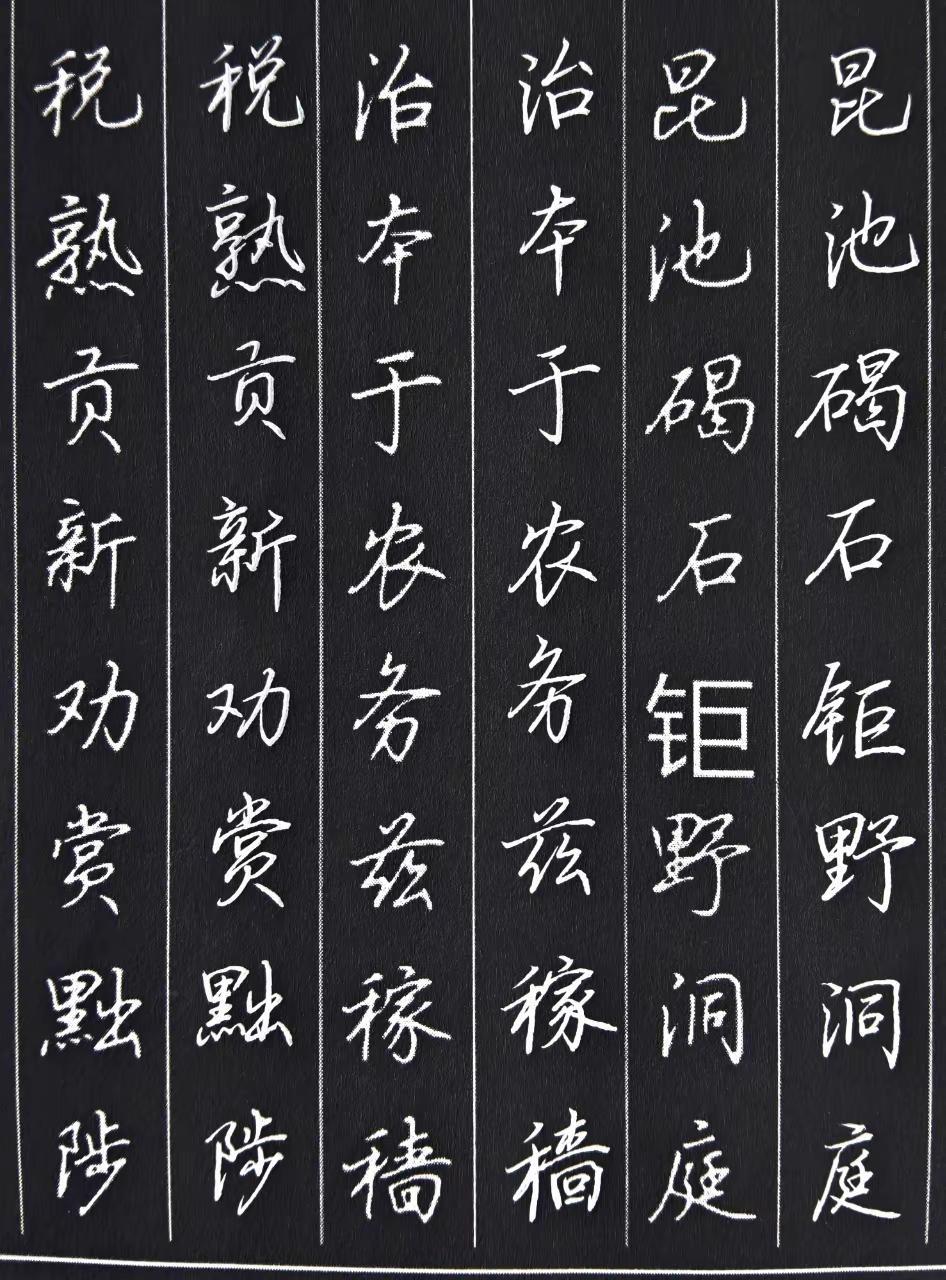 昆池碣石钜野洞庭
昆池碣石钜野洞庭
治本于农务兹稼穑
治本于农务兹稼穑
税熟贡新劝赏黜陟
税熟贡新劝赏黜陟